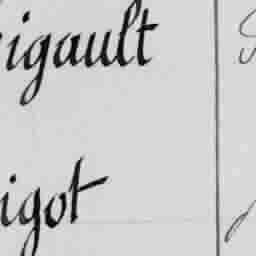 igault
igot